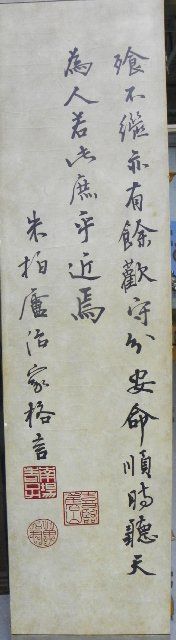 飧不繼亦有餘歡守分安命順時聽天
為人若此庶乎近焉
朱柏廬治家格言